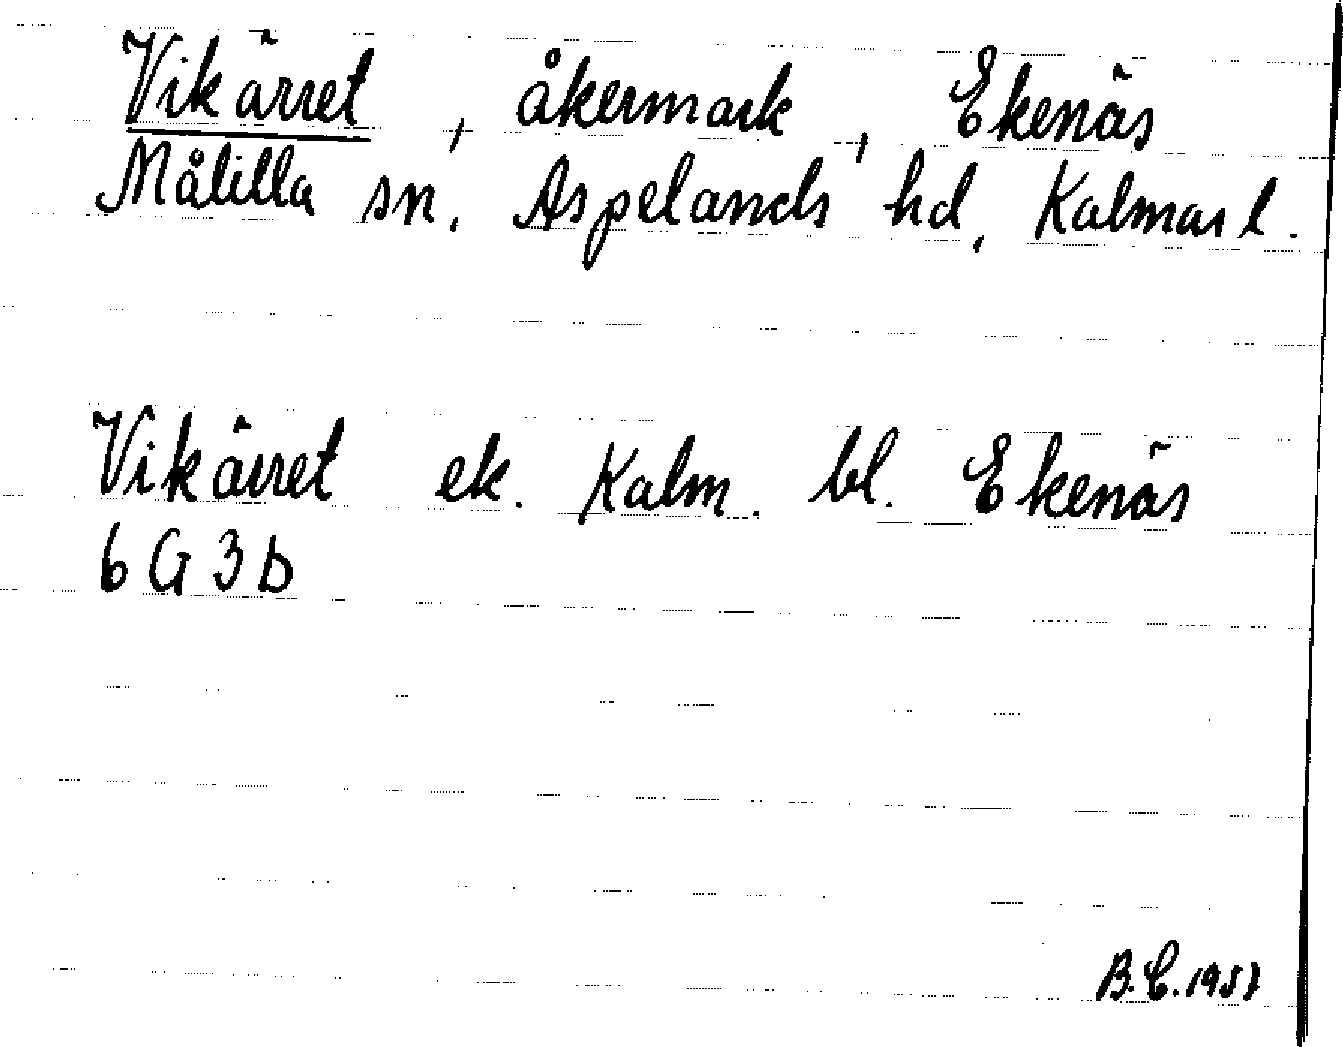 Vikärret, åkermark, Ekenäs
Målilla sn, Aspelands hd, Kalmar l.
Vikärret ek. Kalm. bl. Ekenäs
6G3b
B.C. 1957